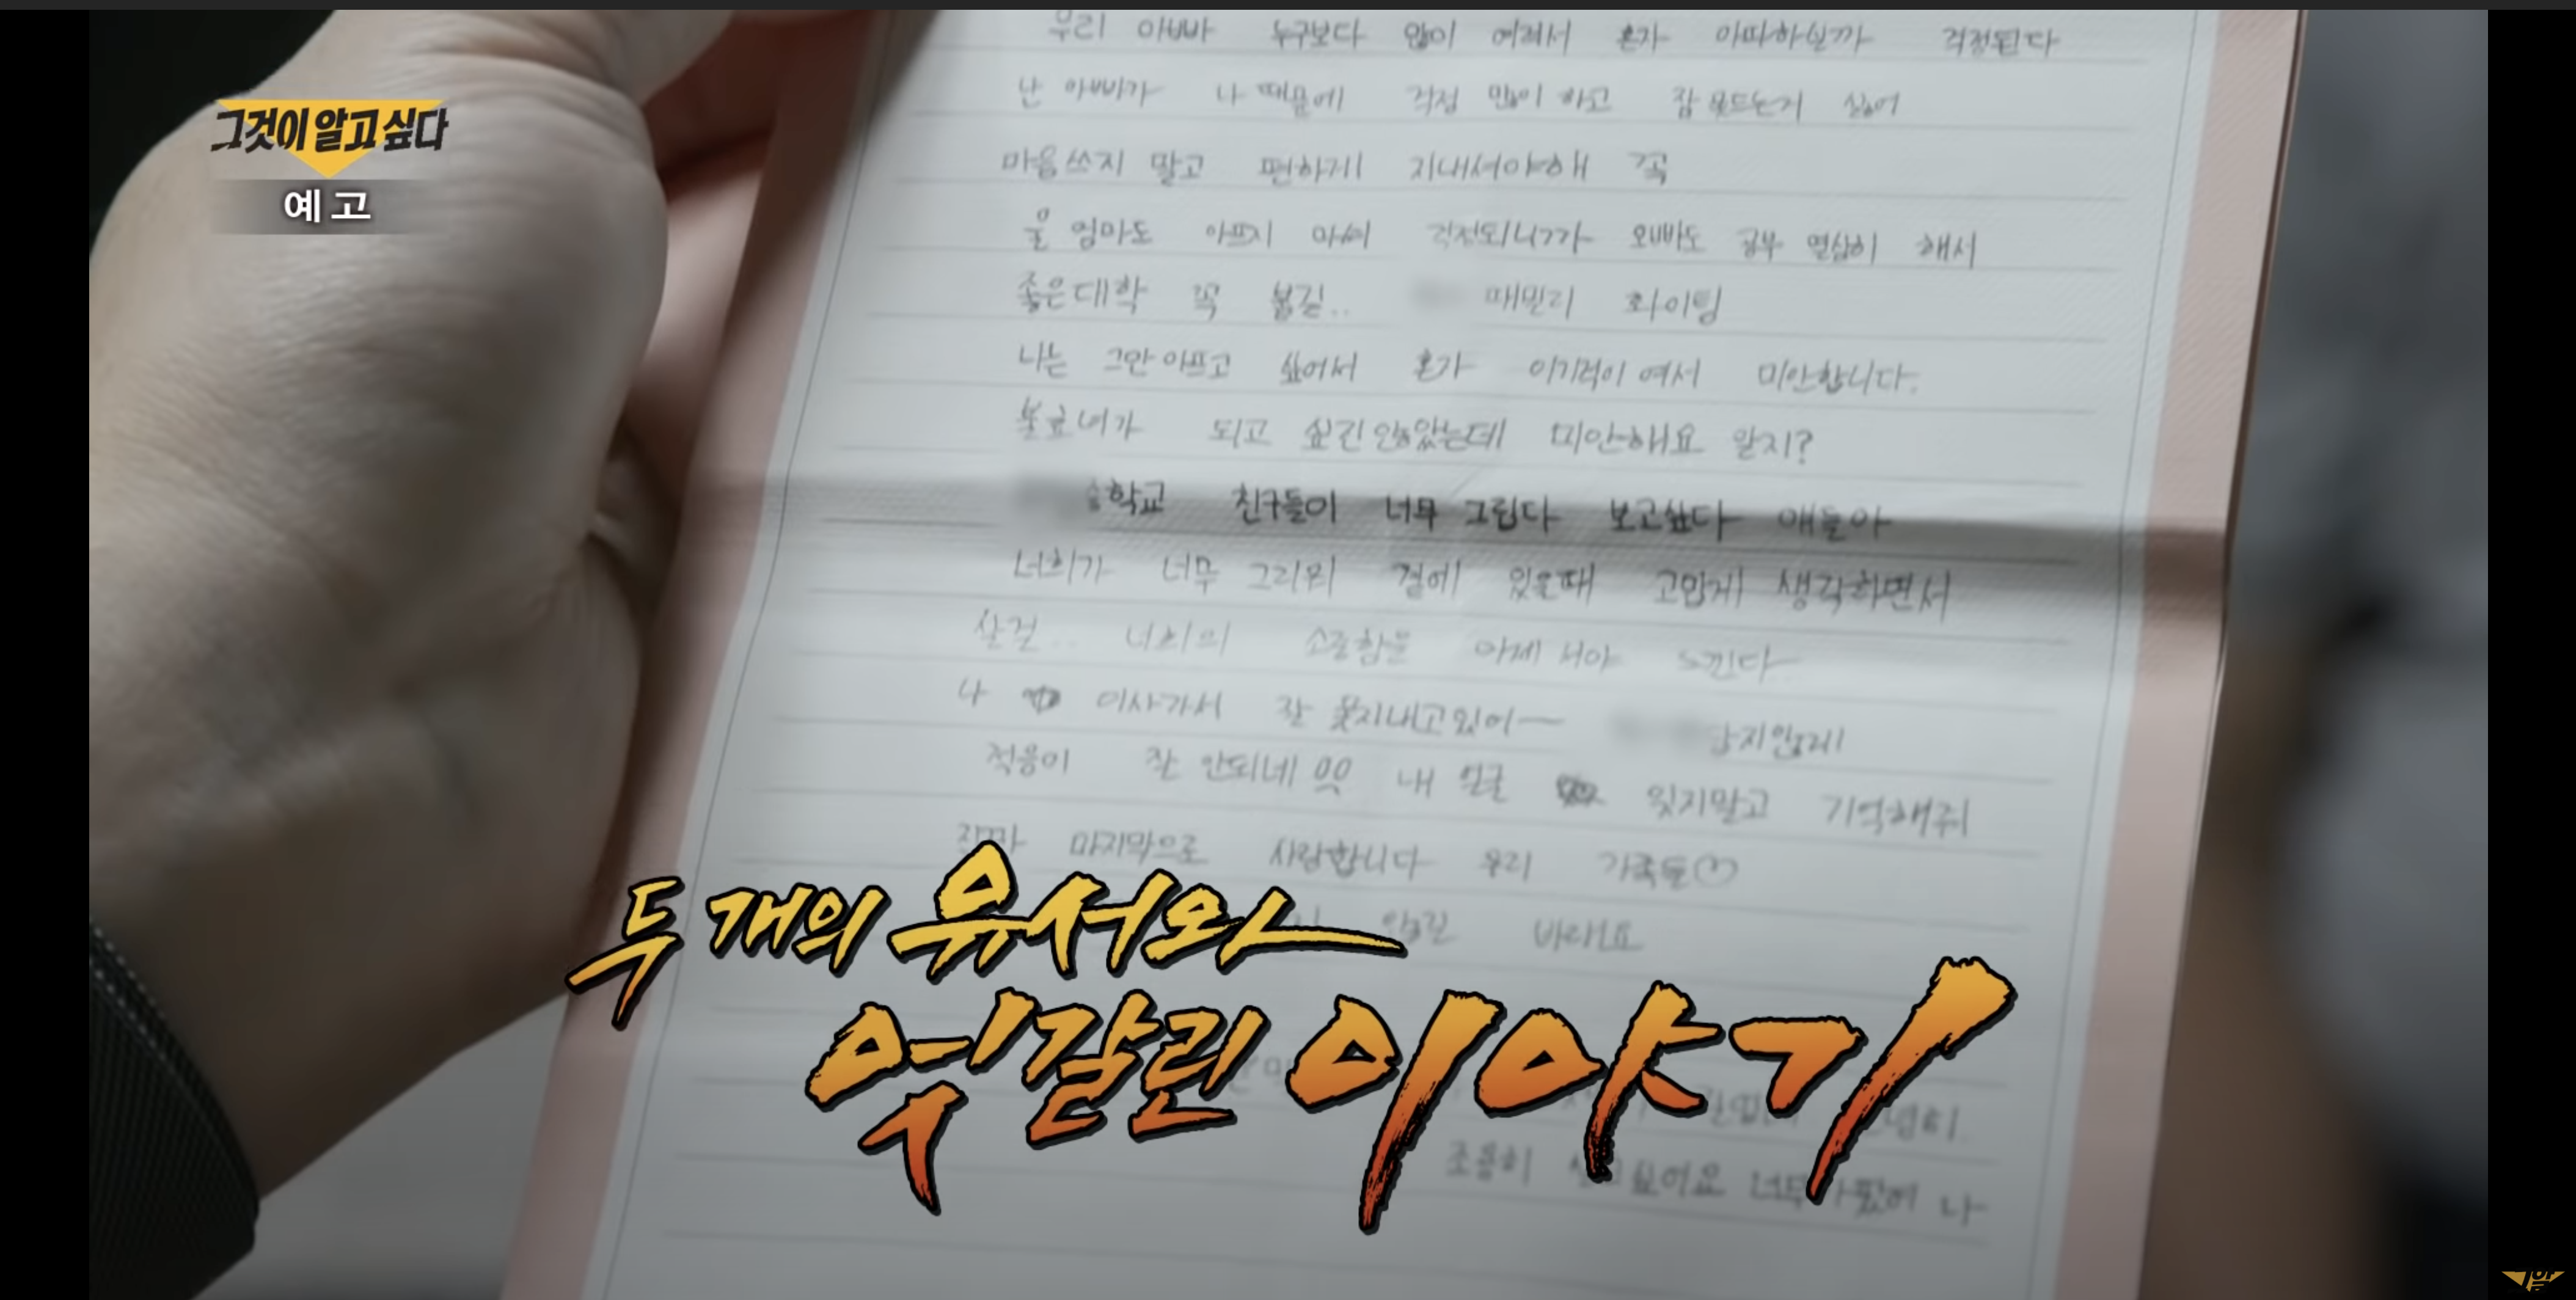 그것이 알고싶다
예고
우리 아빠바 누구보다 맘이 여려서 혼자 아파하실까 걱정된다
난 아빠가 나 때문에 걱정 많이 하고 잠 못드는거 싫어
마음쓰지 말고 편하게 지내셔야해 꼭
울 엄마도 아프지 마쇠 걱정되니까 오빠도 공부 열심히 해서
좋은대학 꼭 붙길.. 패밀리 화이팅
나는 그만 아프고 싶어서 혼자 이기적이여서 미안합니다.
불효녀가 되고 싶진 않았는데 미안해요 알지?
학교 친구들이 너무 그립다 보고싶다 얘들아
너희가 너무 그리워 곁에 있을때 고맙게 생각하면서
살걸.. 너희의 소중함을 이제서야 느낀다
나 이사가서 잘 못지내고있어
적응이 잘 안되네 내 얼굴 잊지말고 기억해줘
진짜 마지막으로 사랑합니다 우리 가족들♡
않길 바래요
조용히 싶어요 너무 아팠어 나
두 개의 유서와
엇갈린 이야기